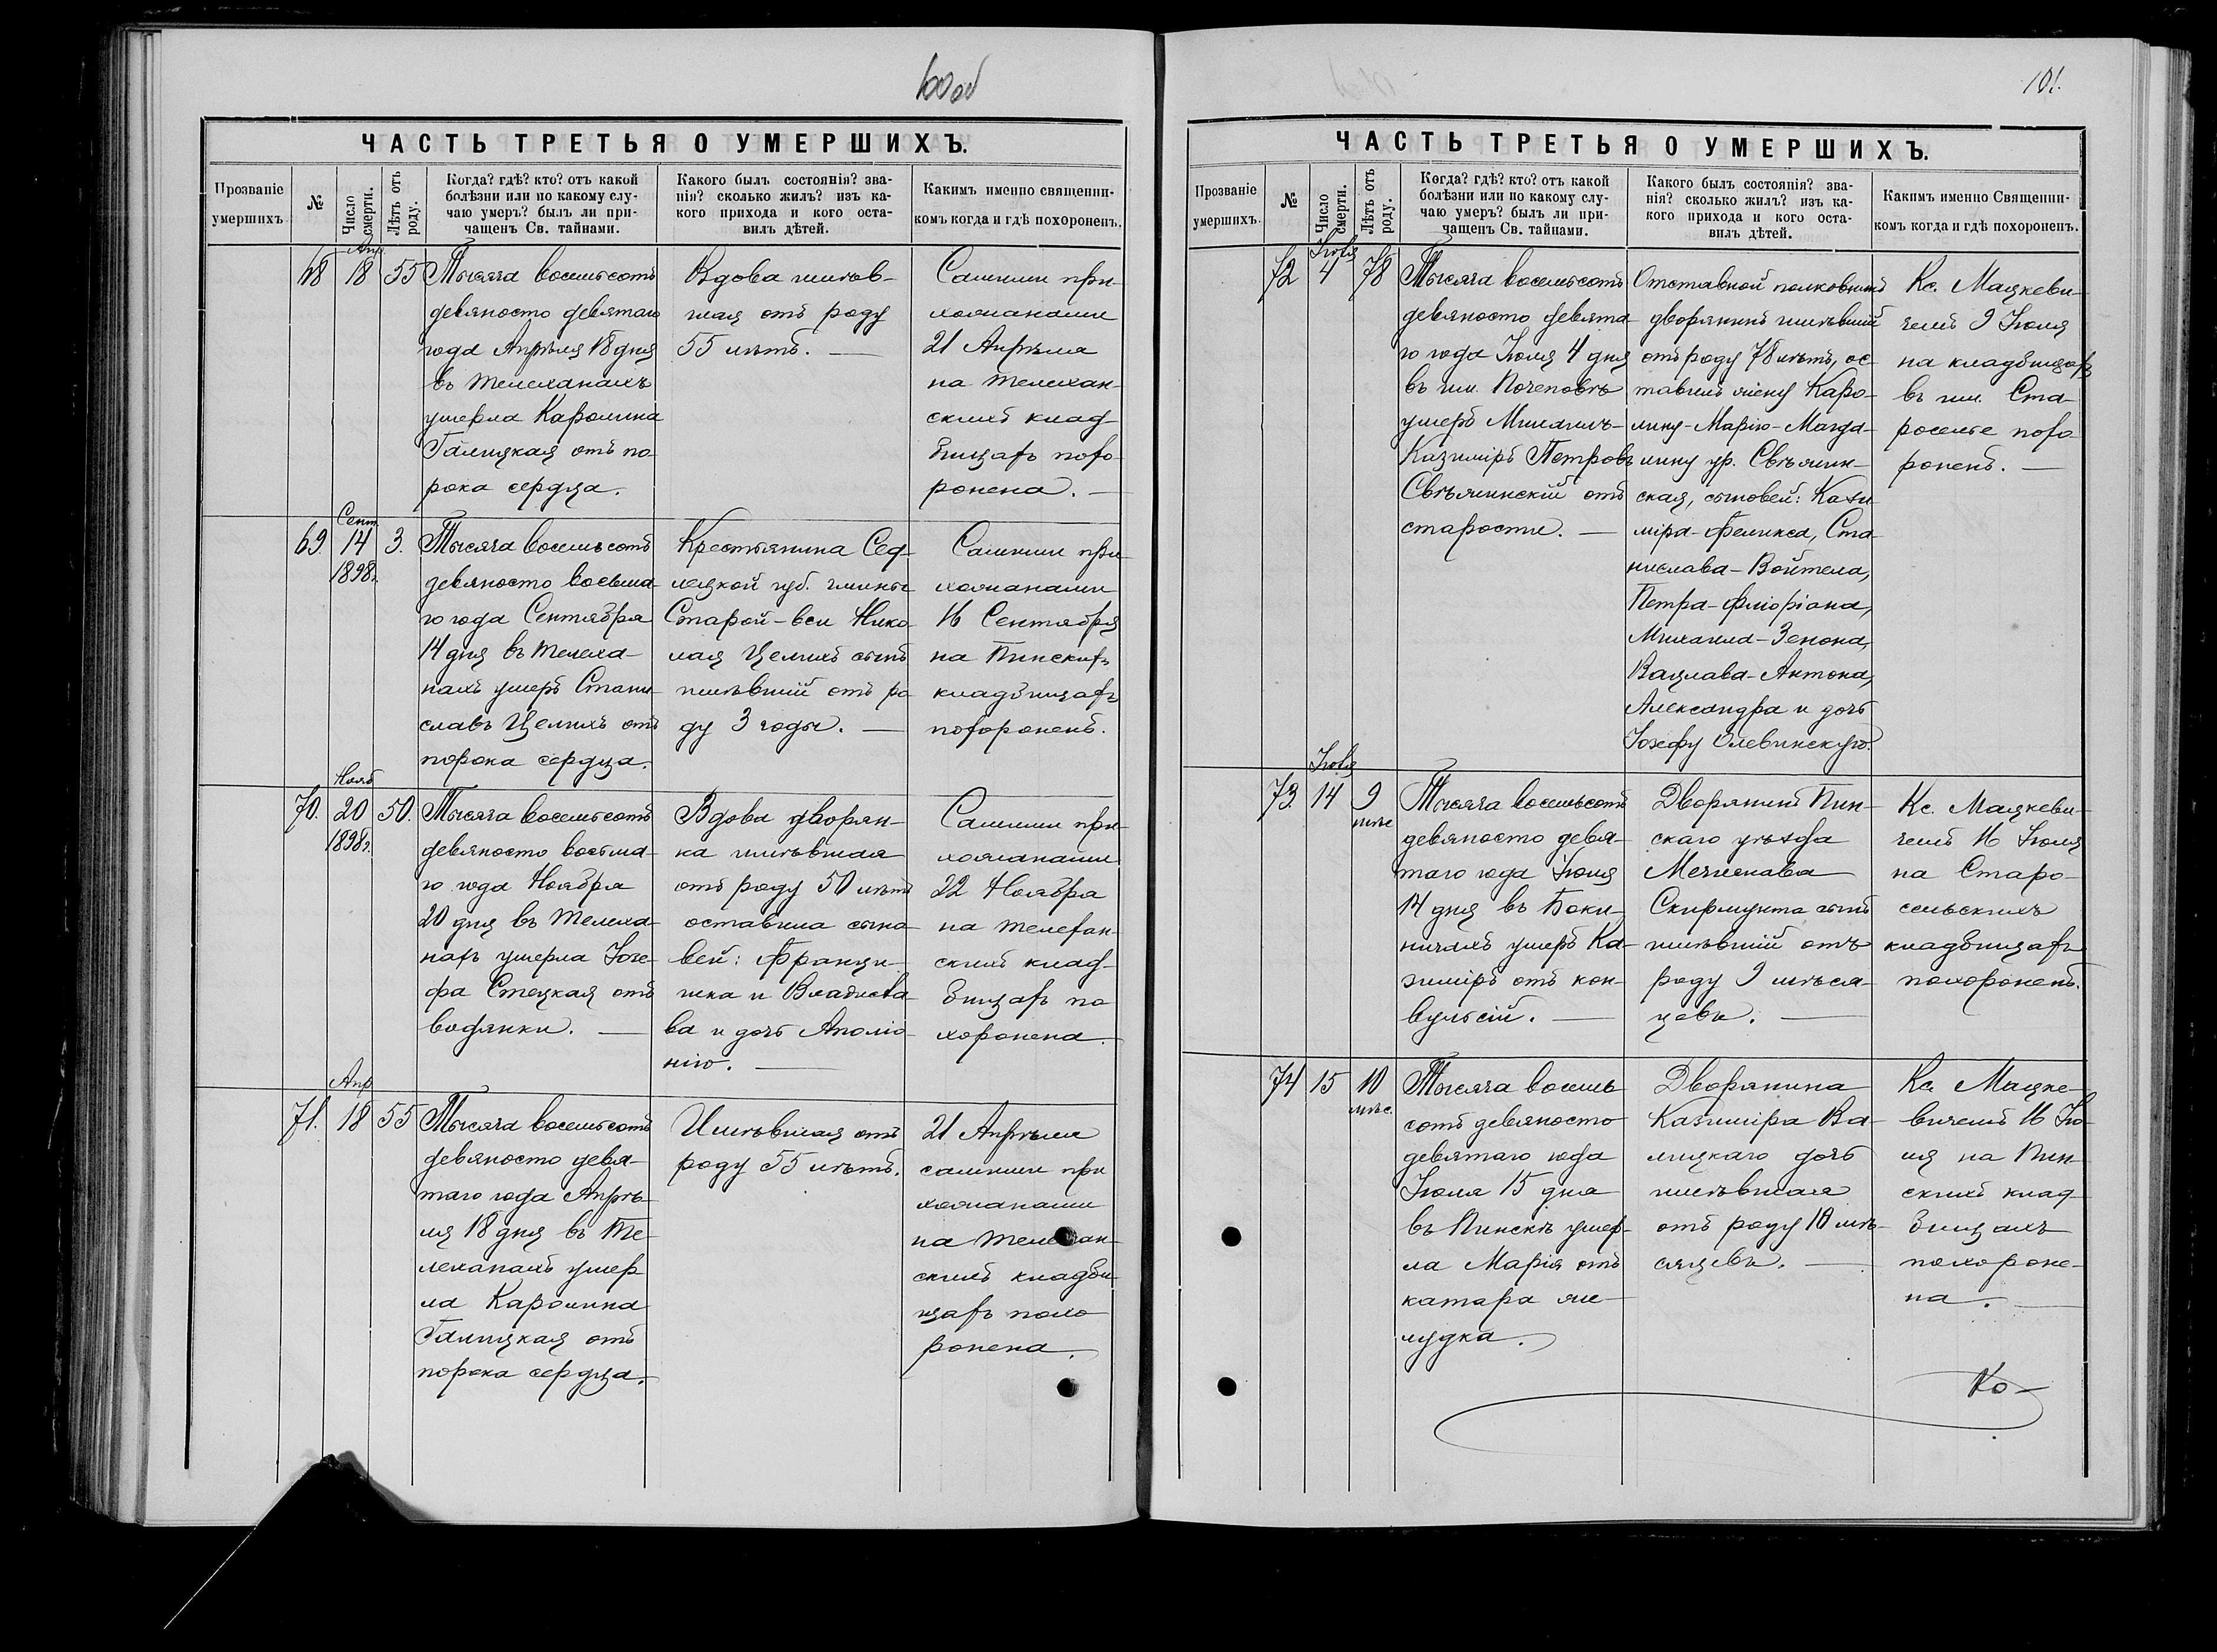 100 об
ЧАСТЬ ТРЕТЬЯ О УМЕРШИХЪ.
Прозваніе
умершихъ
№
Число
смерти.
Лѣтъ отъ
роду.
Когда? гдѣ? кто? отъ какой
болѣзни или по какому слу-
чаю умеръ? былъ ли при-
чащенъ Св. тайнами.
Какого былъ состоянія? зва-
нія? сколько жилъ? изъ ка-
кого прихода и кого оста-
вилъ дѣтей.
Какимъ именно священни-
комъ когда и гдѣ похороненъ.
68
Апр
18
55
Тысяча восемьсотъ
девяносто девятаго
года Апрѣля 18 дня
въ Телеханахъ
умерла Каролина
Галицкая отъ по-
рока сердца.
Вдова имѣв-
шая отъ роду
55 лѣтъ. —
Самими при-
хожанами
21 Апрѣля
на Телехан-
скихъ клад-
бищахъ похо-
ронена. —
69.
Сент
14
1898 г.
3.
Тысяча восемьсотъ
девяносто восьма-
го года Сентября
14 дня въ Телеха-
нахъ умеръ Стани-
славъ Целихъ отъ
порока сердца.
Крестьянина Сед-
лецкой губ. гмины
Старой-веси Нико-
лая Целихъ сынъ
имѣвшій отъ ро-
ду 3 годы. —
Самими при-
хожанами
16 Сентября
на Пинскихъ
кладбищахъ
похороненъ.
70.
Нояб
20
1898 г.
50.
Тысяча восемьсотъ
девяносто восьма-
го года Ноября
20 дня въ Телеха-
нахъ умерла Іозе-
фа Стецкая отъ
водянки. —
Вдова дворян-
ка имѣвшая
отъ роду 50 лѣтъ
оставила сыно-
вей: Францы-
шка и Владисла-
ва и дочь Аполіо-
нію. —
Самими при-
хожанами
22 Ноября
на Телехан-
скихъ клад-
бищахъ по
хоронена.
71.
Апр
18
55
Тысяча восемьсотъ
девяносто девя-
таго года Апрѣ-
ля 18 дня въ Те-
леханахъ умер
ла Каролина
Галицкая отъ
порока сердца.
Имѣвшая отъ
роду 55 лѣтъ.
21 Апрѣля
самими при
хожанами
на Телехан-
скихъ кладби-
щахъ похо
ронена.
101.
ЧАСТЬ ТРЕТЬЯ О УМЕРШИХЪ.
Прозваніе
умершихъ.
№
Число
смерти.
Лѣтъ отъ
роду.
Когда? гдѣ? кто? отъ какой
болѣзни или по какому слу-
чаю умеръ? былъ ли при-
чащенъ Св. тайнами.
Какого былъ состоянія? зва-
нія? сколько жилъ? изъ ка-
кого прихода и кого оста-
вилъ дѣтей.
Какимъ именно Священни-
комъ когда и гдѣ похороненъ.
72
Іюля
4
78
Тысяча восемьсотъ
девяносто девята-
го года Іюля 4 дня
въ им. Почеповѣ
умеръ Михаилъ-
Казиміръ Петровъ
Свѣжинскій отъ
старости. —
Отставной полковникъ
дворянинъ имѣвшій
отъ роду 78 лѣтъ, ос-
тавилъ жену Каро-
лину-Марію-Магда-
лину ур. Свѣжин-
ская, сыновей: Кази-
міра-Феликса, Ста-
нислава-Войтеха,
Петра-Флоріана,
Михаила-Зенона,
Вацлава-Антона,
Александра и дочь
Іозефу Олевинскую.
Кс. Мацкеви-
чемъ 9 Іюля
на кладбищахъ
въ им. Ста-
роселье похо
роненъ. —
73.
Іюля
14
9
мѣс
Тысяча восемьсотъ
девяносто девя-
таго года Іюля
14 дня въ Боки-
ничахъ умеръ Ка-
зиміръ отъ кон-
вульсій. —
Дворянинъ Пин-
скаго уѣзда
Мечислава
Скирмунта сынъ
имѣвшій отъ
роду 9 мѣся-
цевъ. —
Кс. Мацкеви-
чемъ 16 Іюля
на Старо-
сельскихъ
кладбищахъ
похороненъ.
74
15
10
мѣс.
Тысяча восемь
сотъ девяносто
девятаго года
Іюля 15 дня
въ Пинскѣ умер-
ла Марія отъ
катара же-
лудка.
Дворянина
Казиміра Ва-
лицкаго дочь
имѣвшая
отъ роду 10 мѣ-
сяцевъ. —
Кс. Мацке-
вичемъ 16 Ію-
ля на Пин-
скихъ клад
бищахъ
похороне-
на. —
Ко-